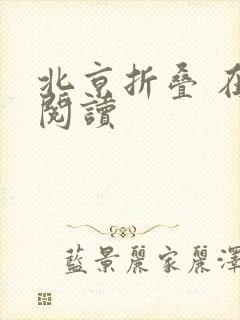 北京折叠 在
閱讀
藍景麗家麗澤